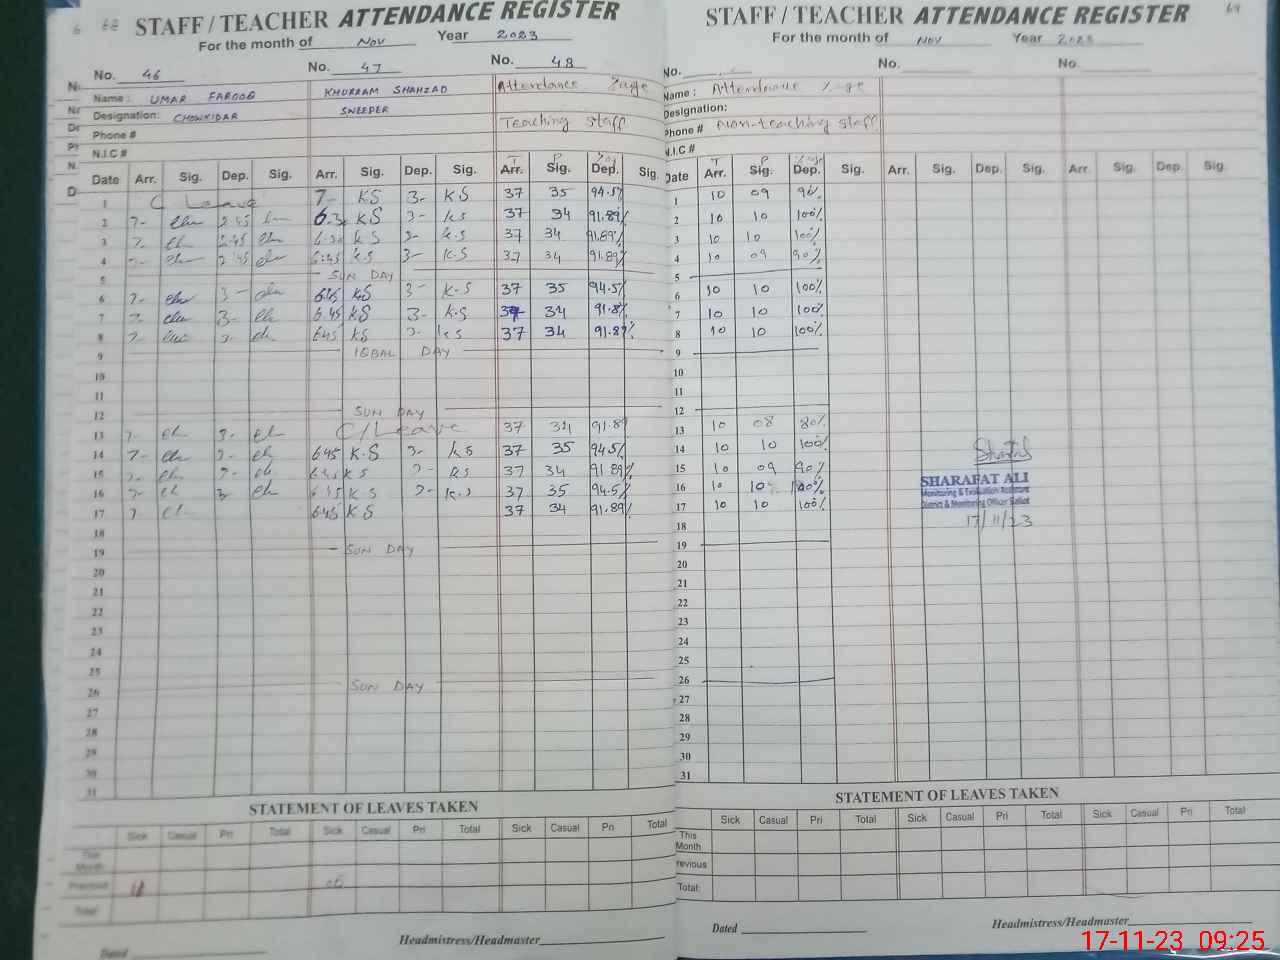 68
STAFF / TEACHER ATTENDANCE REGISTER
For the month of Nov Year 2023
No. 46 No. 47 No. 48
Name : UMAR FAROOQ KHURRAM SHAHZAD Attendance %age
Designation: CHOWKIDAR SWEEPER Teaching Staff
Phone #
N.I.C #
Date Arr. Sig. Dep. Sig. Arr. Sig. Dep. Sig. Arr. Sig. Dep. Sig.
T P %age
1 C Leave 7- KS 3- KS 37 35 94.5%
2 7- 2:45 6.3 KS 3- KS 37 34 91.89%
3 7- 2:45 6.30 KS 3- K.S 37 34 91.89%
4 7- 2:45 6:45 KS 3- K.S 37 34 91.89%
5 SUN DAY
6 7- 3- 6:45 KS 3- K.S 37 35 94.5%
7 7- 3- 6.45 KS 3- K.S 37 34 91.8%
8 7- 3- 645 KS 3- KS 37 34 91.8%
9 IQBAL DAY
10
11
12 SUN DAY
13 7- 3- C/Leave 37 34 91.89
14 7- 3- 645 K.S 3- KS 37 35 94.5%
15 7- 3- 6.45 KS 3- KS 37 34 91.89%
16 7- 3- 6.45 KS 3- K.S 37 35 94.5%
17 7- 645 KS 37 34 91.89%
18
19 SUN DAY
20
21
22
23
24
25
26 SUN DAY
27
28
29
30
31
STATEMENT OF LEAVES TAKEN
Sick Casual Pri Total Sick Casual Pri Total Sick Casual Pri Total
This Month
Previous 05
Total:
Dated Headmistress/Headmaster
69
STAFF / TEACHER ATTENDANCE REGISTER
For the month of Nov Year 2023
No. No. No.
Name : Attendance %age
Designation:
Phone # Non-teaching staff
N.I.C #
Date Arr. Sig. Dep. Sig. Arr. Sig. Dep. Sig. Arr. Sig. Dep. Sig.
T P %age
1 10 09 90%
2 10 10 100%
3 10 10 100%
4 10 09 90%
5
6 10 10 100%
7 10 10 100%
8 10 10 100%
9
10
11
12
13 10 08 80%
14 10 10 100%
15 10 09 90%
16 10 10 100%
17 10 10 100%
18
19
20
21
22
23
24
25
26
27
28
29
30
31
SHARAFAT ALI
Monitoring & Evaluation Assistant
District & Monitoring Officer Sialkot
17/11/23
STATEMENT OF LEAVES TAKEN
Sick Casual Pri Total Sick Casual Pri Total Sick Casual Pri Total
This Month
revious
Total:
Dated Headmistress/Headmaster
17-11-23 09:25